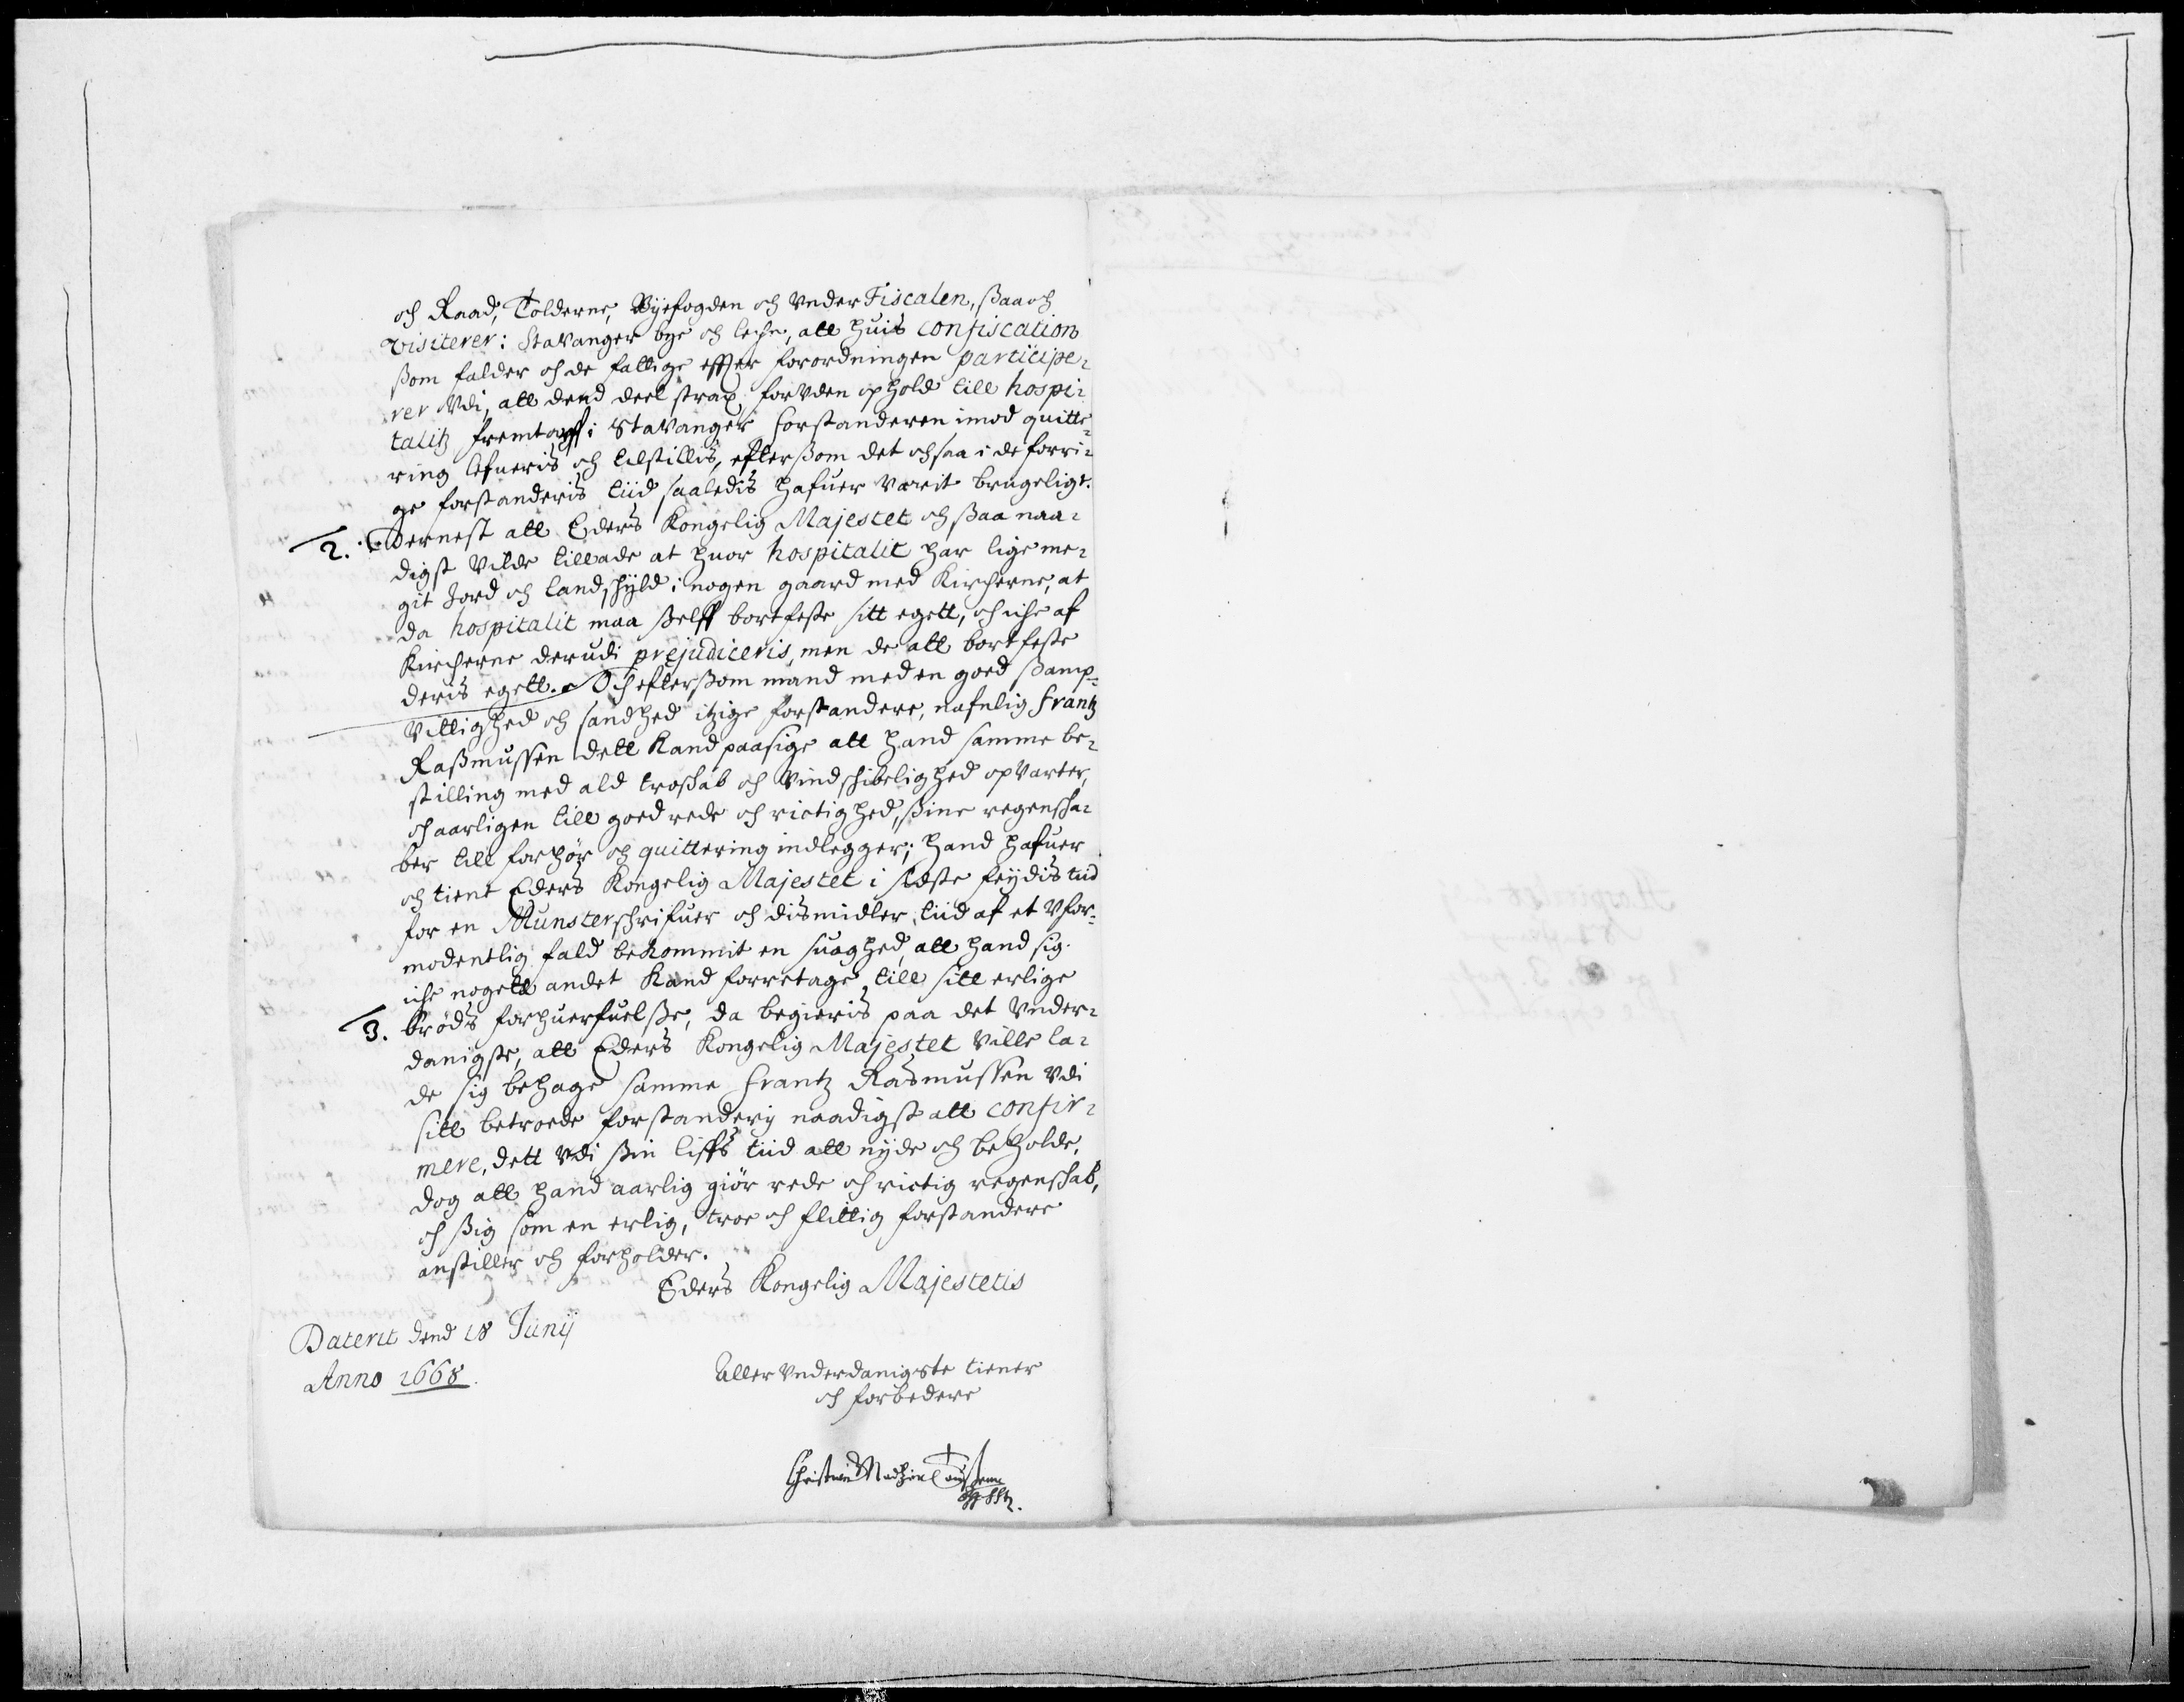 och Raad, Tolderne, Byefogden och Vnder Fiscalen, ßaa och
visiterer i Stavanger bye och lehn, att huis confiscation
ßom falder och de fattige effter forordningen participe¬
rer Vdi, att dend deel strax, forVden ophold till hospi¬
talitz fremtarff i StaVanger forstanderen imod quitte¬
ring lefueris och tilstillis, efterßom det ochsaa i de forri¬
ge forstanderis tiid saaledis hafuer Værit brugeligt.
2. Dernest att Eders Kongelig Majestet och ßaa naa¬
digst Vilde tillade at huor hospitalit har lige me¬
git Jord och landschyld i nogen gaard med Kircherne, at
da hospitalit maa ßelff bortfeste sitt egett, och iche af
Kircherne derudi prejudiceris, men de att bortfeste
deris egett. Och efterßom mand med en goed ßamp¬
Vittighed och sandhed itzige forstandere, nafnlig Frantz
Raßmussen dett Kand paasige att hand samme be¬
stilling med ald troschab och Vindschibelighed opVarter,
och aarligen till goed rede och rictighed, ßine regenscha¬
ber till forhør och quittering indlegger; hand hafuer
och tient Eders Kongelig Majestet i sidste feydis tiid
for en Munsterschrifuer och dismidler tiid af et Vfor¬
modentlig fald bekommit en suaghed, att hand sig
iche nogett andet Kand forretage till sitt erlige
3. brøds forhuerfuelße, da begieris paa det Vnder¬
danigste, att Eders Kongelig Majestet Ville la¬
de sig behage samme Frantz Rasmussen Vdi
sitt betroede forstanderij naadigst att confir¬
mere, dett Vdi ßin liffs tiid att nyde och beholde,
dog att hand aarlig giør rede och rictig regenschab,
och ßig som en erlig, troe och flittig forstandere
anstiller och forholder.
Eders Kongelig Majestetis
Daterit dend 18 Junij
Anno 1668.
Aller Vnderdanigste tiener
och forbedere